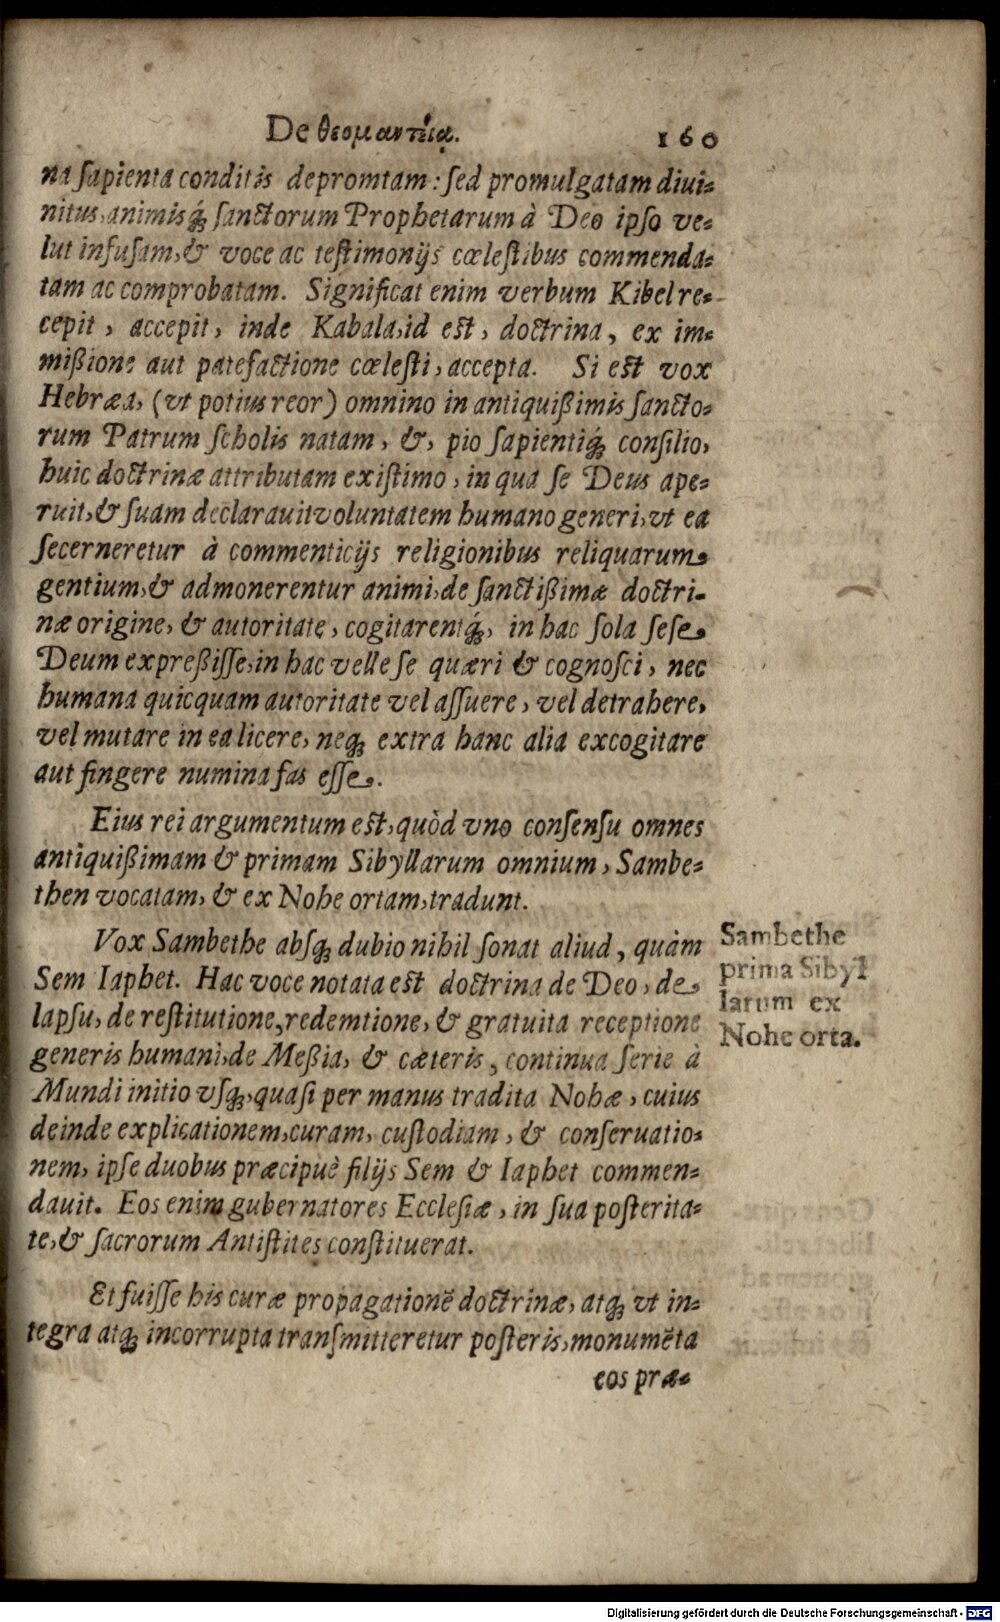 De θεομαντείᾳ. 160
na ſapienta conditis depromtam: ſed promulgatam diui⸗
nitus, animisq́ꝫ ſanctorum Prophetarum à Deo ipſo ve⸗
lut infuſam, & voce ac teſtimonijs cœleſtibus commenda⸗
tam ac comprobatam. Significat enim verbum Kibel re⸗
cepit, accepit, inde Kabala, id eſt, doctrina, ex im⸗
mißione aut patefactione cœleſti, accepta. Si eſt vox
Hebræa, (vt potius reor) omnino in antiquißimis ſancto⸗
rum Patrum ſcholis natam, &, pio ſapientiq́ꝫ conſilio,
huic doctrinæ attributam exiſtimo, in qua ſe Deus ape⸗
ruit, & ſuam declarauit voluntatem humano generi, vt ea
ſecerneretur à commenticijs religionibus reliquarum
gentium, & admonerentur animi, de ſanctißimæ doctri-
næ origine, & autoritate, cogitarentq́ꝫ, in hac ſola ſeſe
Deum expreßiſſe, in hac velle ſe quæri & cognoſci, nec
humana quicquam autoritate vel aſſuere, vel detrahere,
vel mutare in ea licere, neqꝫ extra hanc alia excogitare
aut fingere numina fas eſſe.
Eius rei argumentum eſt, quòd vno conſenſu omnes
antiquißimam & primam Sibyllarum omnium, Sambe⸗
then vocatam, & ex Nohe ortam, tradunt.
Vox Sambethe absqꝫ dubio nihil ſonat aliud, quàm
Sem Iaphet. Hac voce notata eſt doctrina de Deo, de
lapſu, de reſtitutione, redemtione, & gratuita receptione
generis humani, de Meßia, & cæteris, continua ſerie à
Mundi initio vſqꝫ, quaſi per manus tradita Nohæ, cuius
deinde explicationem, curam, cuſtodiam, & conſeruatio⸗
nem, ipſe duobus præcipuè filijs Sem & Iaphet commen⸗
dauit. Eos enim gubernatores Eccleſiæ, in ſua poſterita⸗
te, & ſacrorum Antiſtites conſtituerat.
Et fuiſſe his curæ propagationē doctrinæ, atqꝫ vt in⸗
tegra atqꝫ incorrupta tranſmitteretur poſteris, monumēta
eos præ⸗
Sambethe
prima Sibyl
larum ex
Nohe orta.
Digitalisierung gefördert durch die Deutsche Forschungsgemeinschaft - DFG